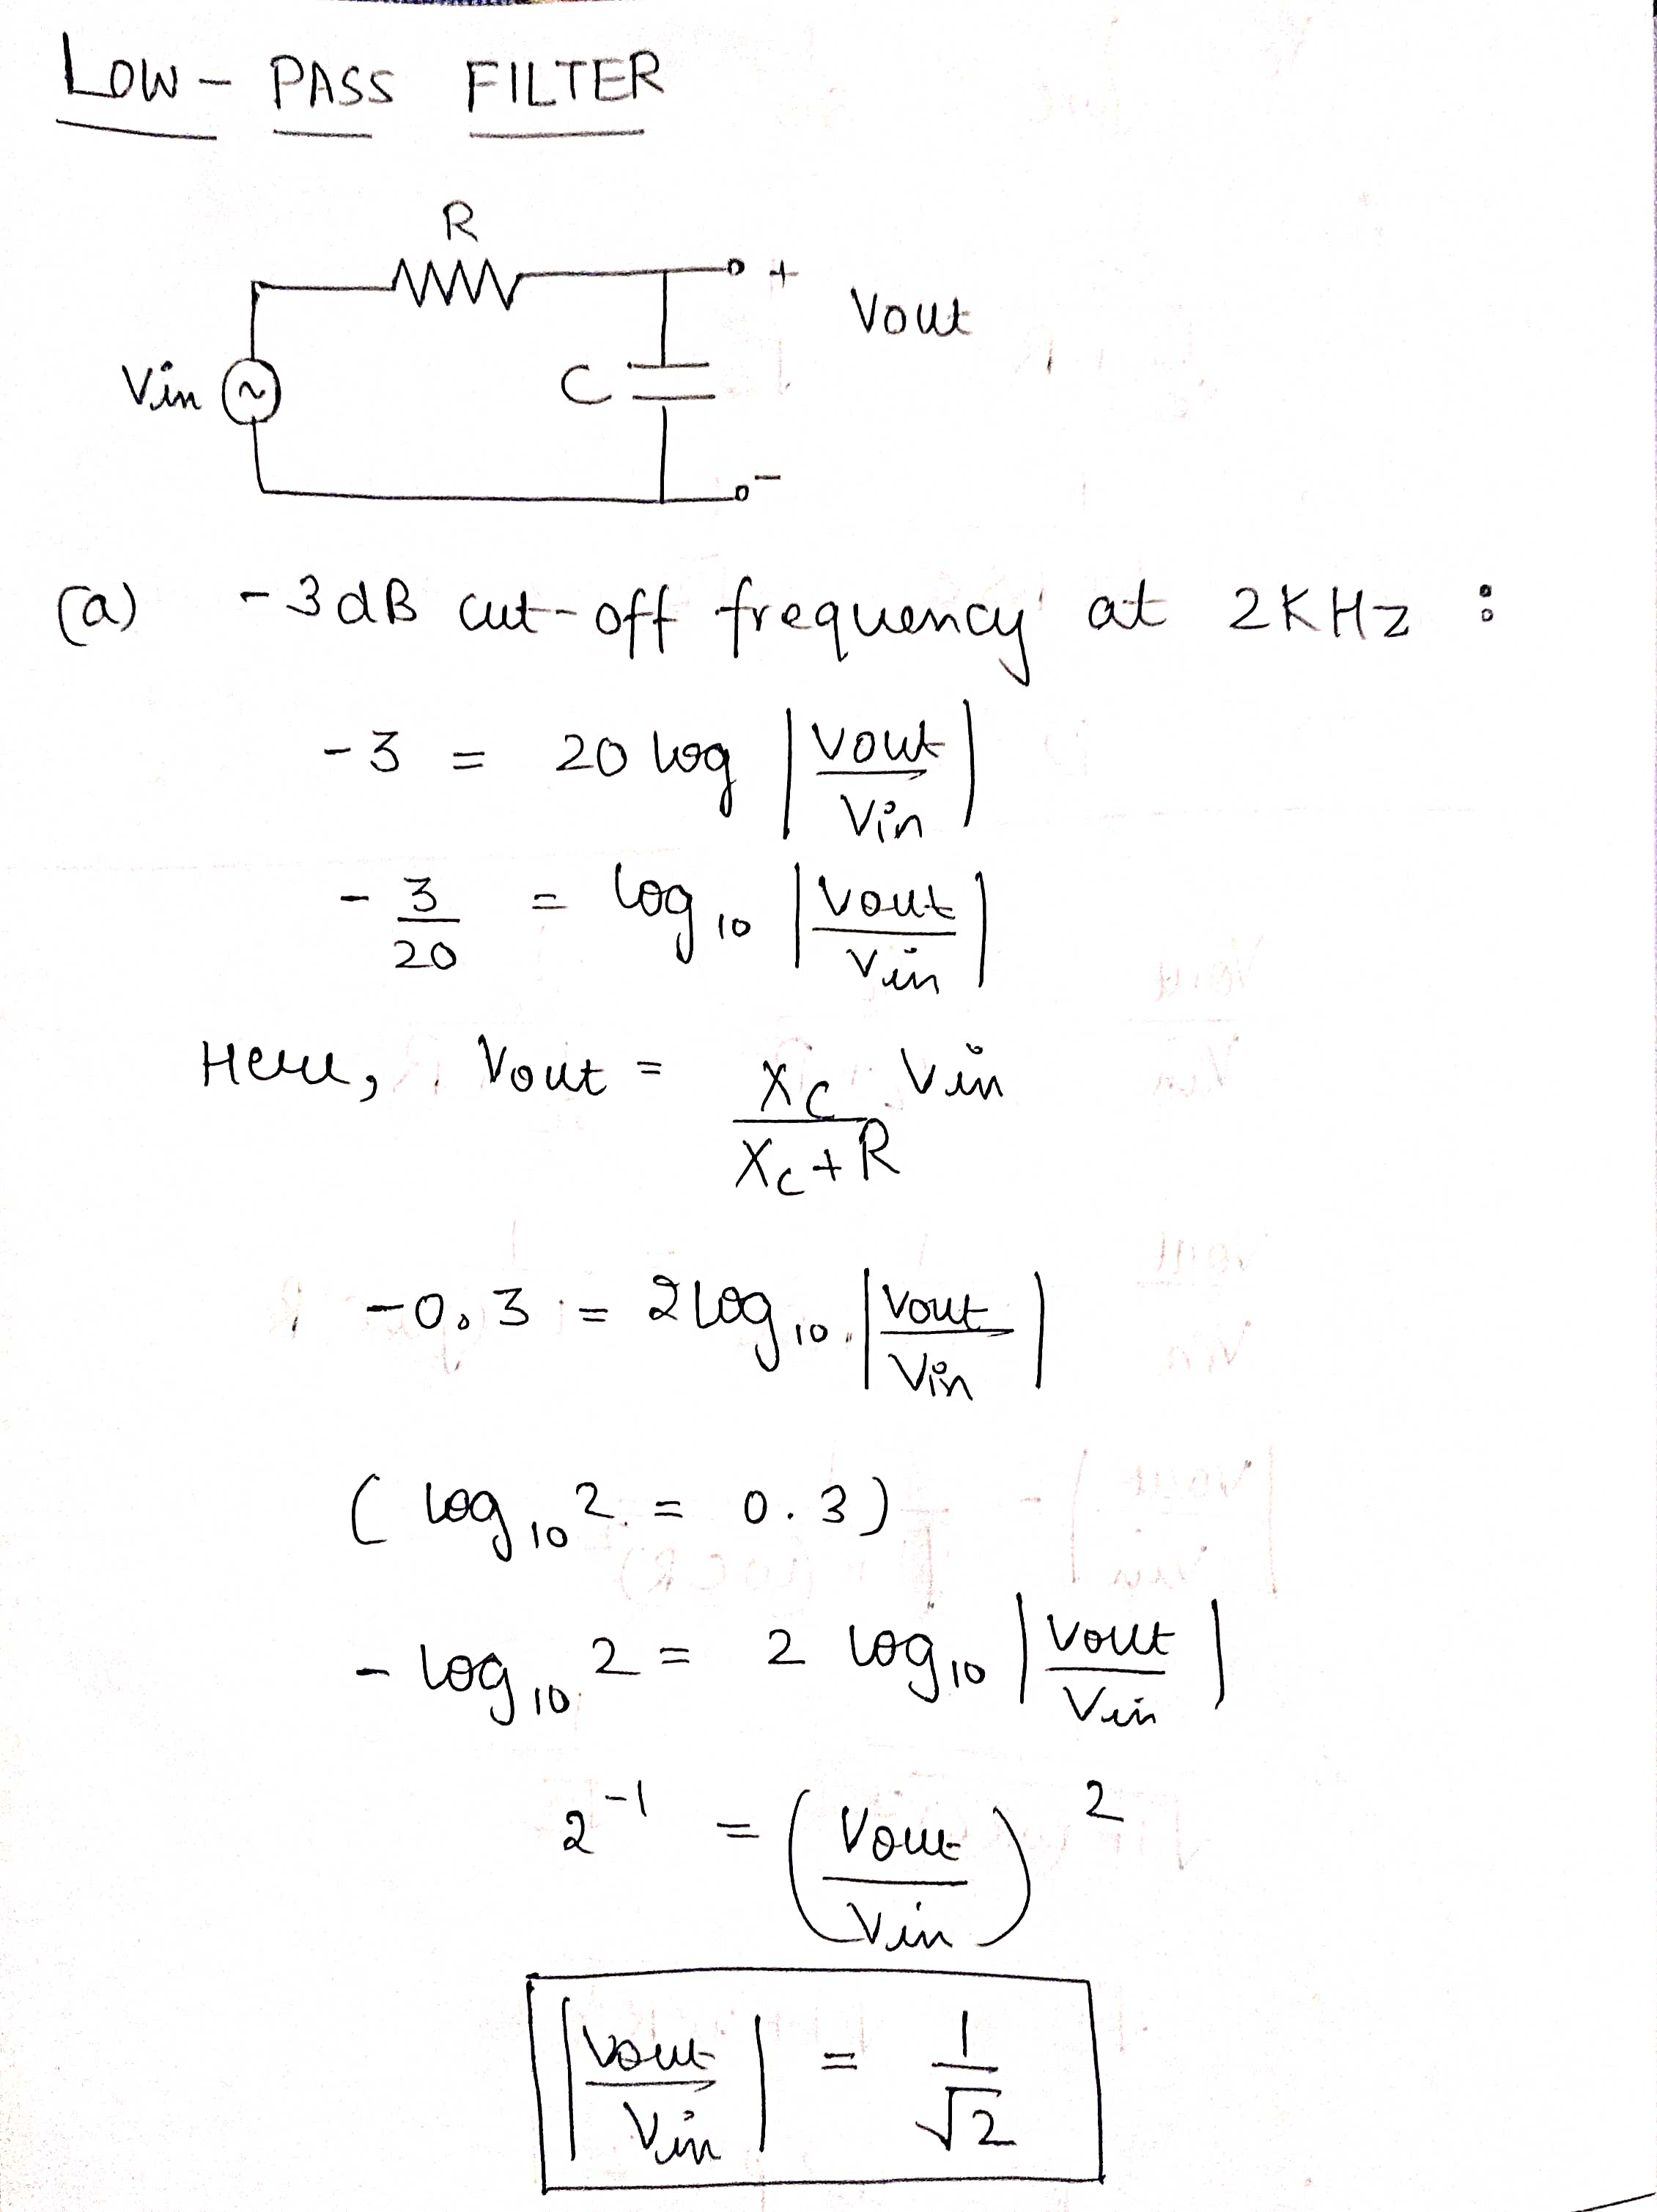 LOW - PASS FILTER
R
+
Vout
Vin ~
C
-
(a) -3dB cut-off frequency at 2KHz :
-3 = 20 log |Vout/Vin|
-3/20 = log₁₀ |Vout/Vin|
Here, Vout = Xc/(Xc+R) Vin
-0.3 = 2log₁₀ |Vout/Vin|
(log₁₀2 = 0.3)
-log₁₀2 = 2 log₁₀ |Vout/Vin|
2⁻¹ = (Vout/Vin)²
|Vout/Vin| = 1/√2